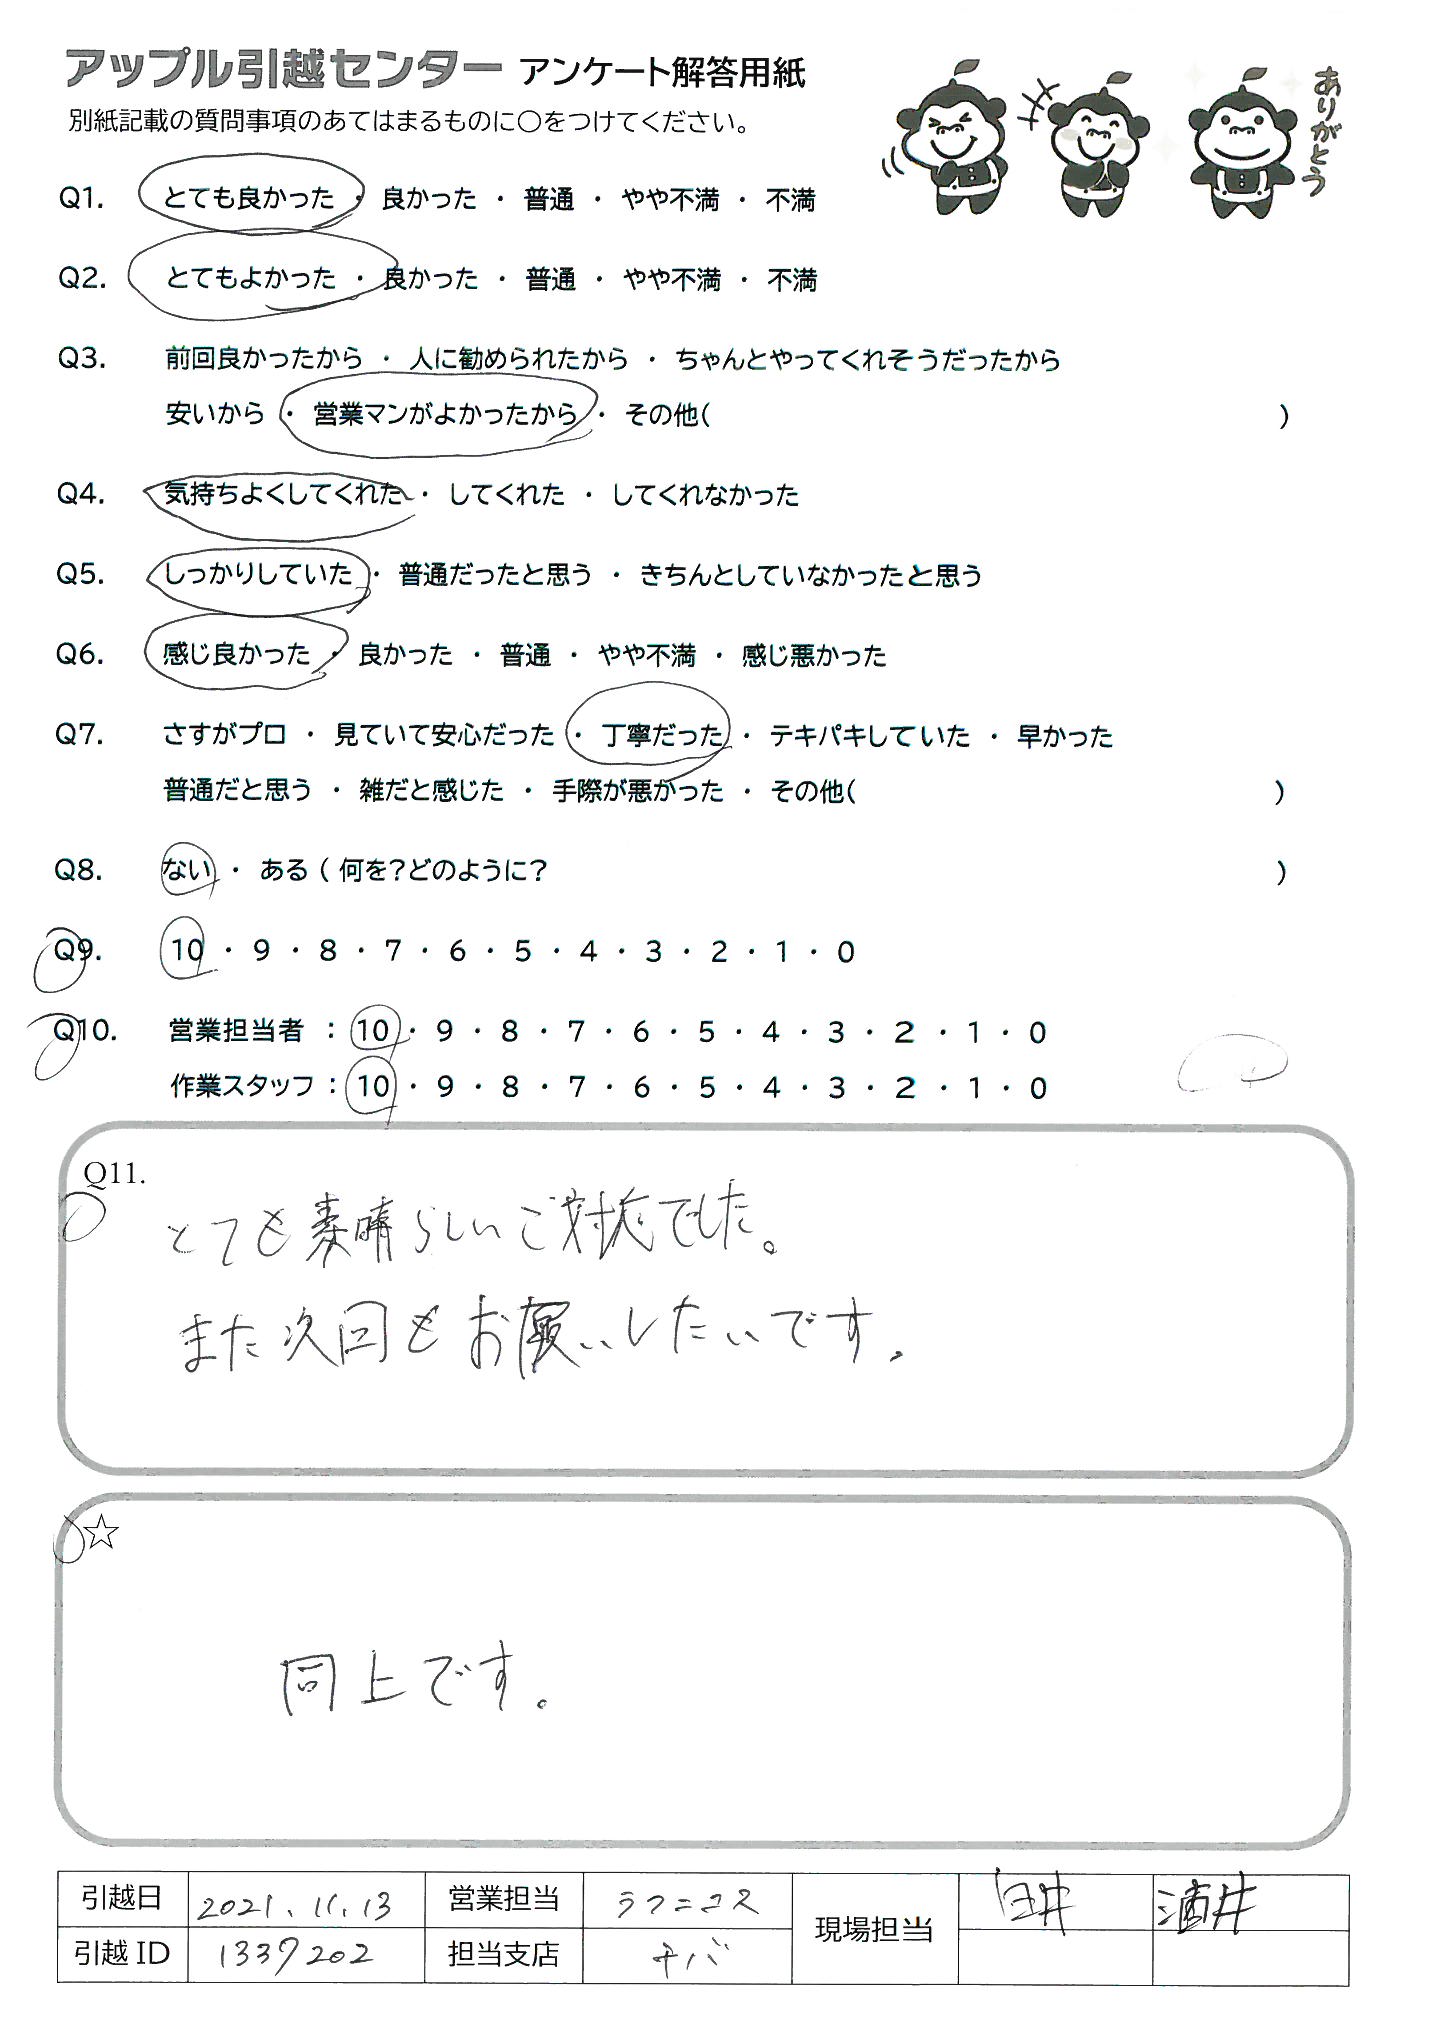 アップル引越センター アンケート解答用紙
ありがとう
別紙記載の質問事項のあてはまるものに○をつけてください。
Q1. とても良かった ・ 良かった ・ 普通 ・ やや不満 ・ 不満
Q2. とてもよかった ・ 良かった ・ 普通 ・ やや不満 ・ 不満
Q3. 前回良かったから ・ 人に勧められたから ・ ちゃんとやってくれそうだったから
安いから ・ 営業マンがよかったから ・ その他( )
Q4. 気持ちよくしてくれた ・ してくれた ・ してくれなかった
Q5. しっかりしていた ・ 普通だったと思う ・ きちんとしていなかったと思う
Q6. 感じ良かった ・ 良かった ・ 普通 ・ やや不満 ・ 感じ悪かった
Q7. さすがプロ ・ 見ていて安心だった ・ 丁寧だった ・ テキパキしていた ・ 早かった
普通だと思う ・ 雑だと感じた ・ 手際が悪かった ・ その他( )
Q8. ない ・ ある ( 何を?どのように? )
Q9. 10 ・ 9 ・ 8 ・ 7 ・ 6 ・ 5 ・ 4 ・ 3 ・ 2 ・ 1 ・ 0
Q10. 営業担当者 : 10 ・ 9 ・ 8 ・ 7 ・ 6 ・ 5 ・ 4 ・ 3 ・ 2 ・ 1 ・ 0
作業スタッフ : 10 ・ 9 ・ 8 ・ 7 ・ 6 ・ 5 ・ 4 ・ 3 ・ 2 ・ 1 ・ 0
Q11.
とても素晴らしいご対応でした。
また次回もお願いしたいです。
☆
同上です。
引越日 2021.11.13 営業担当 現場担当 酒井
引越ID 1337202 担当支店 チバ